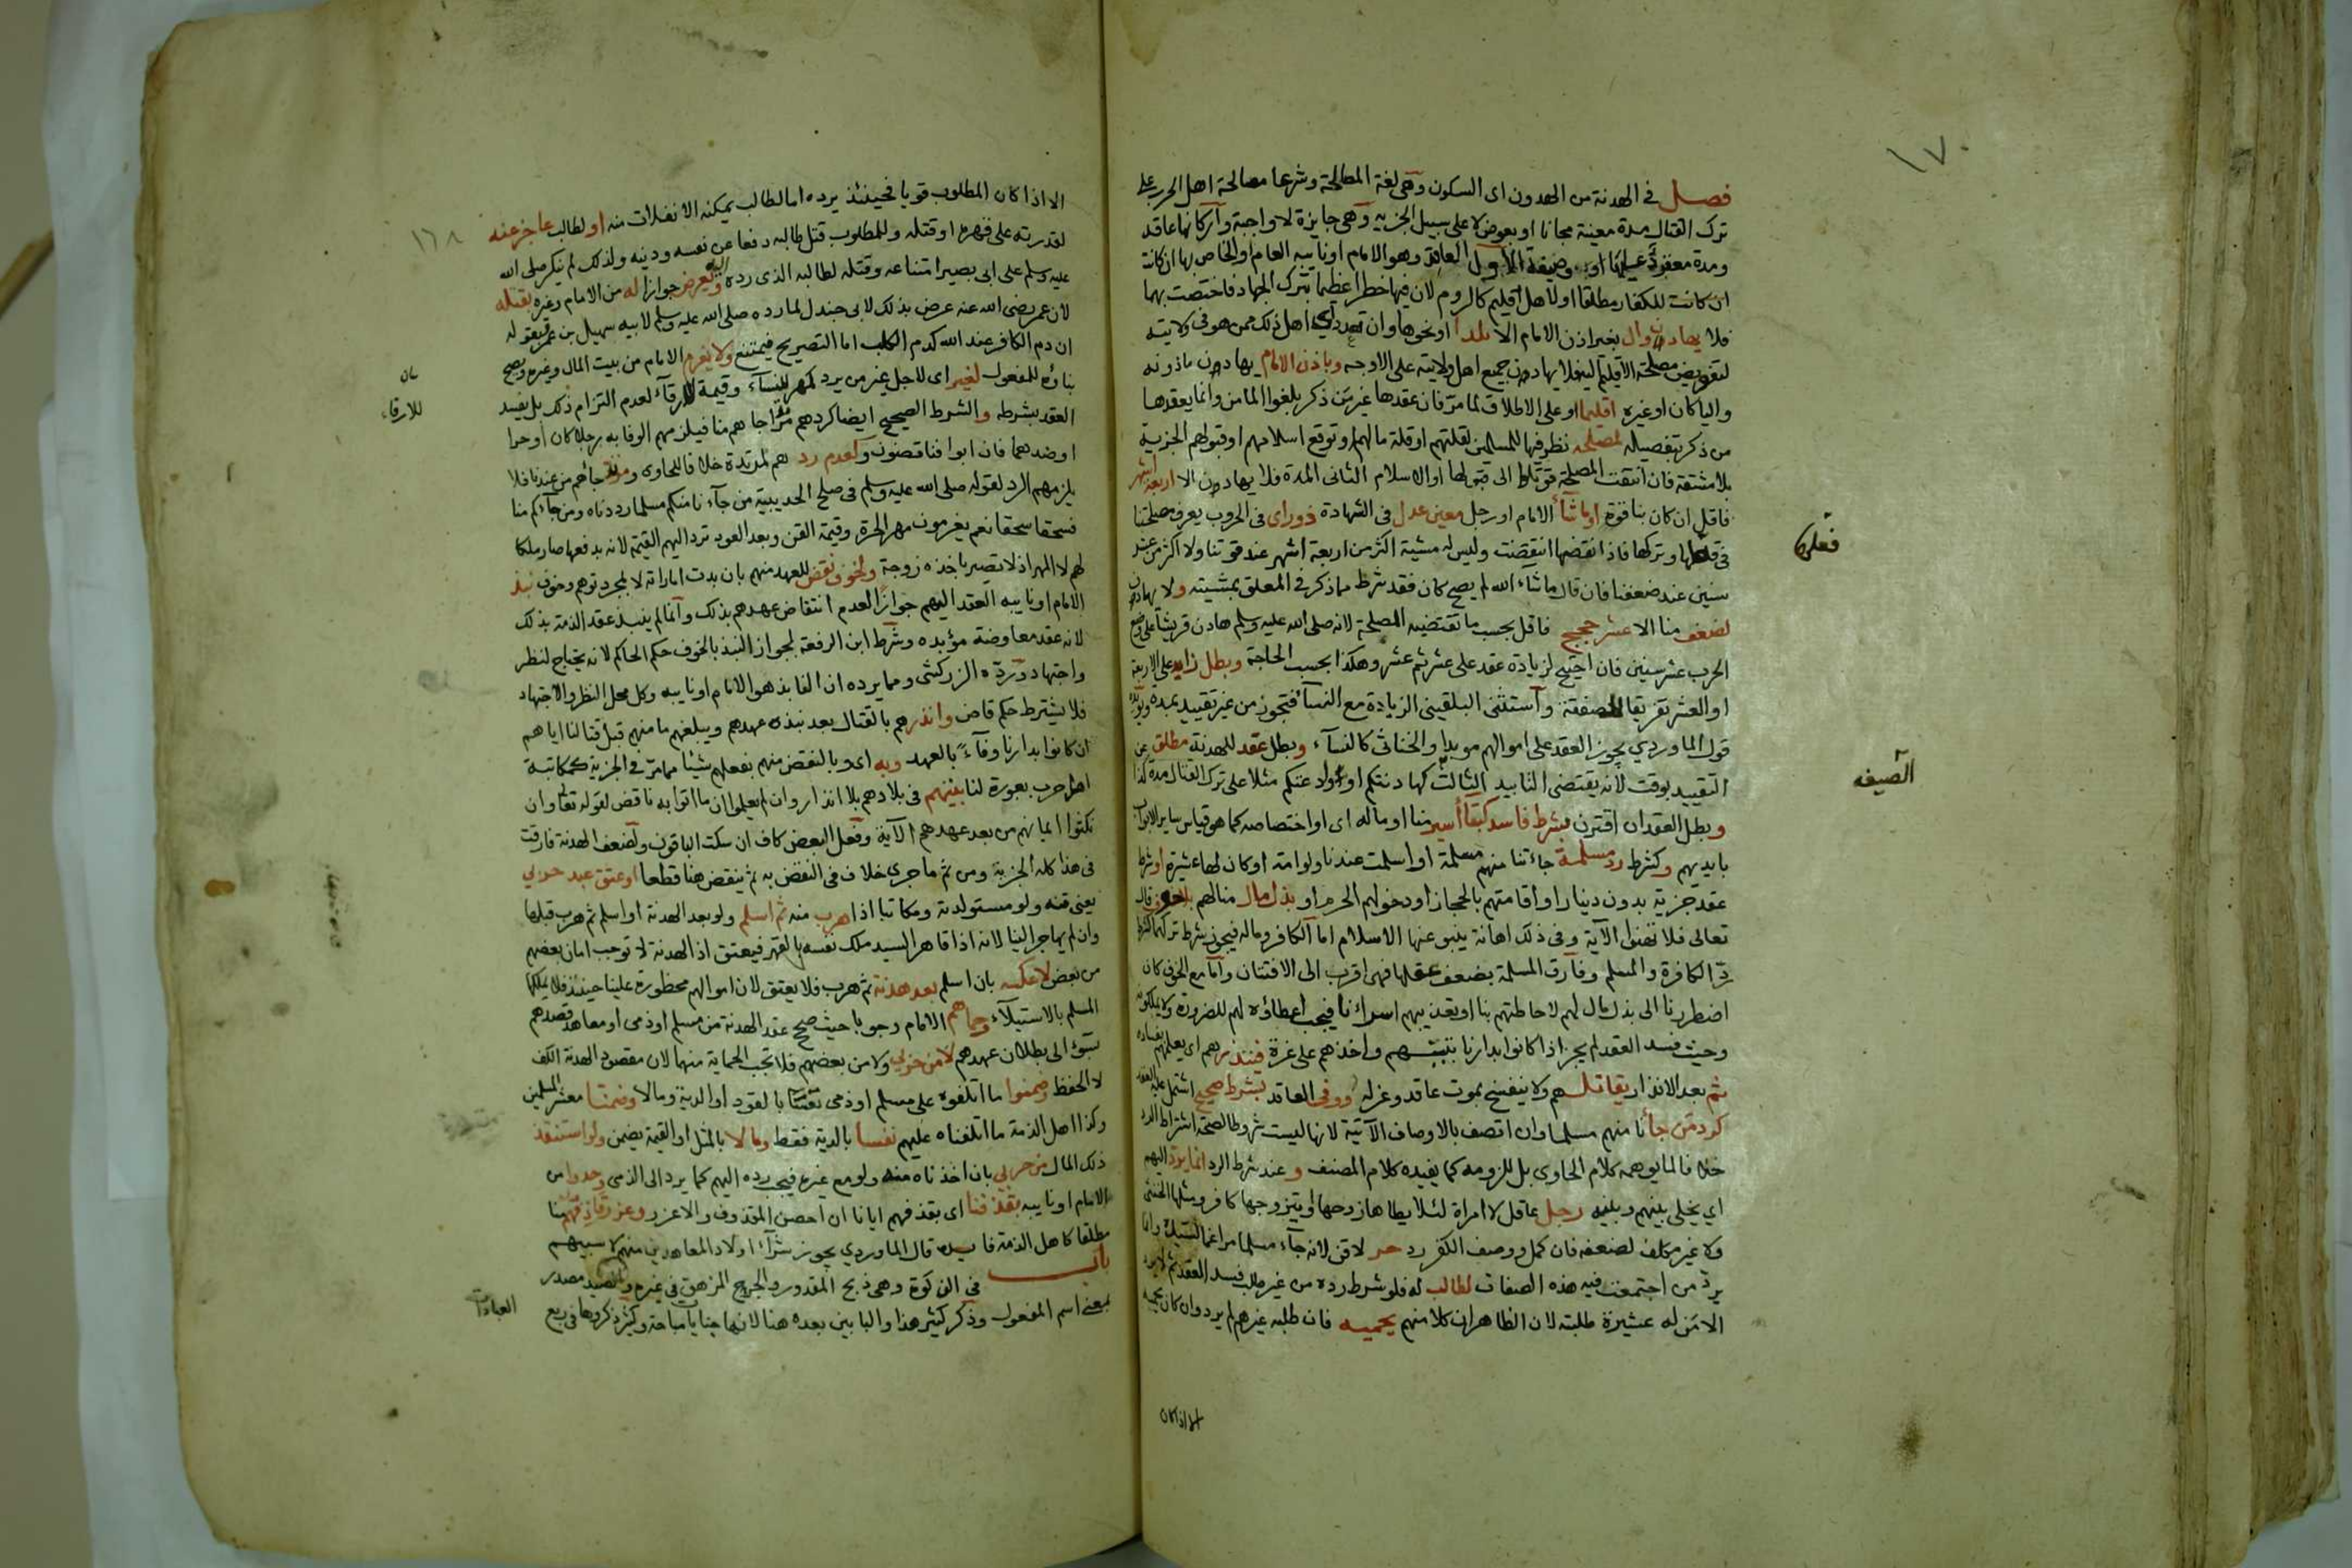 ١٧٠
فصل في الهدنة من الهدون اى السكون وهي لغة المصالحة وشرعا مصالحة اهل الحرب على
ترك القتال مدة معينة مجانا او بعوض لا على سبيل الجزيه وهى جايزة لا واجبة واركانها عاقد
ومدة معقود عليها او وصيغة الاول العاقد وهو الامام او نايبه العام او الخاص بها ان كانت
ان كانت للكفار مطلقا او لاهل اقليم كالروم لان فيها خطرا عظيما بترك الجهاد فاختصت بهما
فلا يهادن وال بغير اذن الامام الا بلدا او نحوها وان تعدد اى اهل ذلك ممن هو فى ولايته
لتفويض مصلحة الاقليم اليه فلا يهادن جميع اهل ولايته على الاوجه وباذن الامام يهادن ماذونه
واليا كان او غيره اقليما او على الاطلاق لما مر فان عقدها غير من ذكر بلغوا المامن وانما يعقدها
من ذكر بتفصيله لمصلحه نظر فيها للمسلمين لقلتهم او قلة مالهم او توقع اسلامهم او قبولهم الجزية
بلا مشقة فان انتفت المصلحة قوتلوا الى قبولها او الاسلام الثانى المدة فلا يهادن الا اربعة اشهر
فاقل ان كان بنا قوة او ما شآء الامام او رجل معين عدل فى الشهادة ذو راى فى الحروب يعرف مصلحتنا
فى فعلها وتركها فاذا نقضها انتقضت وليس له مشية اكثر من اربعة اشهر عند قوتنا ولا اكثر من عشر
فعلها
سنين عند ضعفنا فان قال ما شاء الله لم يصح كان فقد شرط مما ذكر فى المعلق بمشيته ولا يهادن
لضعف منا الا عشر حجج فاقل بحسب ما تقتضيه المصلحة لانه صلى الله عليه وسلم هادن قريشا على وضع
الحرب عشر سنين فان احتيج لزيادة عقد على عشر ثم عشر وهكذا بحسب الحاجة وبطل زايد على الاربعة
او العشر تفريقا للصفقة واستثنى البلقينى الزيادة مع النسآ فتجوز من غير تقييد بمده ويؤيده
قول الماوردي يجوز العقد على اموالهم مؤبدا والخناثى كالنسآء وبطل عقد للهدنة مطلق عن
الصيغه
التقييد بوقت لانه يقتضى التابيد الثالث كهادنتكم او اوادعتكم مثلا على ترك القتال مدة كذا
وبطل العقد ان اقترن بشرط فاسد كبقآ اسير منا او ماله اى او اختصاصه كما هو قياس ساير الابواب
بايديهم وكشرط رد مسلمة جاءتنا منهم مسلمة او اسلمت عندنا ولو امة او كان لها عشيرة او شرط
عقد جزية بدون دينار او اقامتهم بالحجاز او دخولهم الحرم او بذل مال منا لهم بلا خوف قال
تعالى فلا تهنوا الآية وفى ذلك اهانة ينبو عنها الاسلام اما الكافر وماله فيجوز شرط تركهما كشرط
رد الكافرة والمسلم وفارق المسلمة بضعف عقلها فهى اقرب الى الافتتان واما مع الخوف كان
اضطررنا الى بذل مال لهم لاحاطتهم بنا او تعذيبهم اسرانا فيجب اعطاؤه لهم للضرورة ولا يملكونه
وحيث فسد العقد لم يجز اذا كانوا بدارنا تبييتهم واخذهم على غرة فينذرهم اى يعلمهم بفساده
ثم بعد الانذار يقاتلهم ولا ينفسخ بموت عاقد وعزله ووفى العاقد بشرط صحيح اشتمل عليه العقد
كرد من جاءنا منهم مسلما وان اتصف بالاوصاف الآتية لانها ليست شروطا لصحة اشتراط الرد
خلافا لما يوهمه كلام الحاوى بل للزومه كما يفيده كلام المصنف وعند شرط الرد انما يرد اليهم
اي يخلى بينهم وبينه رجل عاقل لا امراة لئلا يطاها زوجها او يتزوجها كافر ومثلها الخنثى
ولا غير مكلف لضعفه فان كمل ووصف الكفر رد حر لا قن لانه جآء مسلما مراغما لسيده وانما
يرد من اجتمعت فيه هذه الصفات لطالب له فلو شرط رده من غير طلب فسد العقد ثم لا يرد
الا من له عشيرة طلبته لان الظاهر ان كلا منهم يحميه فان طلبه غيرهم لم يرد وان كان يحميه
الا اذا كان
١٦٨
الا اذا كان المطلوب قويا فحينئذ يرده اما الطالب يمكنه الانفلات منه او لطالب عاجز عنه
لقدرته على قهره او قتله وللمطلوب قتل طالبه دفعا عن نفسه ودينه ولذلك لم ينكر صلى الله
عليه وسلم على ابى بصير امتناعه وقتله لطالبه الذى رده اليه ويعرض جوازا له من الامام وغيره بقتله
لان عمر رضى الله عنه عرض بذلك لابى جندل لما رده صلى الله عليه وسلم لابيه سهيل بن عمرو بقوله
ان دم الكافر عند الله كدم الكلب اما التصريح فيمتنع ولا يغرم الامام من بيت المال وغيره ويصح
بناؤه للمفعول لغير اى لاجل غير من يرد كمهر للنسآء وقيمة للارقآء لعدم التزام ذلك بل يفسد
للارقاء
العقد بشرطه والشرط الصحيح ايضا كردهم مرتدا جاءهم منا فيلزمهم الوفا به رجلا كان او حرا
او ضدهما فان ابوا فناقضون ولعدم رد هم لمرتدة خلافا للحاوى ومرتد جاءهم من عندنا فلا
يلزمهم الرد لقوله صلى الله عليه وسلم فى صلح الحديبية من جآءنا منكم مسلما رددناه ومن جآءكم منا
فسحقا سحقا نعم يغرمون مهر الحرة وقيمة القن وبعد العود ترد اليهم القيمة لانه بدفعها صار ملكا
لهم لا المهر اذ لا يصير باخذه زوجة ولخوف نقض للعهد منهم بان بدت اماراته لا لمجرد توهم وخوف نبذ
الامام او نايبه العقد اليهم جوازا لعدم انتقاض عهدهم بذلك وانما لم ينبذ عقد الذمة بذلك
لانه عقد معاوضة مؤبده وشرط ابن الرفعة لجواز النبذ بالخوف حكم الحاكم لانه يحتاج لنظر
واجتهاد ورده الزركشى ومما يرده ان النابذ هو الامام او نايبه وكل محل النظر والاجتهاد
فلا يشترط حكم قاض وانذرهم بالقتال بعد نبذه عهدهم ويبلغهم مامنهم قبل قتالنا اياهم
ان كانوا بدارنا وفآء بالعهد وبه اى وبالنقض منهم بفعلهم شيئا مما مر فى الجزية كمكاتبة
اهل حرب بعورة لنا بيتهم فى بلادهم بلا انذار وان لم يعلموا ان ما اتوا به ناقض لقوله تعالى وان
نكثوا ايمانهم من بعد عهدهم الآية وفعل البعض كاف ان سكت الباقون ولضعف الهدنة فارقت
فى هذا كله الجزية ومن ثم ما جرى خلاف فى النقض به ثم ينقض هنا قطعا او عتق عبد حربي
يعنى قنه ولو مستولدة ومكاتبا اذا هرب منه ثم اسلم ولو بعد الهدنة او اسلم ثم هرب قبلها
وان لم يهاجر الينا لانه اذا قاهر السيد ملك نفسه بالقهر فيعتق اذ الهدنة لا توجب امان بعضهم
من بعض لا عكسه بان اسلم بعد هدنة ثم هرب فلا يعتق لان اموالهم محظورة علينا حينئذ فلا يملكها
المسلم بالاستيلآء وحماهم الامام وجوبا حيث صح عقد الهدنة من مسلم او ذمى او معاهد قصدهم
بسوء الى بطلان عهدهم لا من حربي ولا من بعضهم فلا تجب الحماية منهما لان مقصود الهدنة الكف
لا الحفظ وضمنوا ما اتلفوه على مسلم او ذمى نفسا بالقود او الدية ومالا وضمنا معشر المسلمين
وكذا اهل الذمة ما اتلفناه عليهم نفسا بالدية فقط ومالا بالمثل او القيمة يضمن ولو استنقذ
ذلك المال من حربي بان اخذناه منه ولو مع غيره فيجب رده اليهم كما يرد الى الذمى وحدوا من
الامام او نايبه بقذفنا اى بقذفهم ايانا ان احصن المقذوف والا عزر وعزر قاذفهم منا
مطلقا كاهل الذمة فايده قال الماوردي يجوز شرآء اولاد المعاهدين منهم لا سبيهم
باب فى الذكوة وهى ذبح المقدور والجرح المزهق فى غيره والصيد مصدر
بمعنى اسم المفعول وذكر كثير هذا والبابين بعده هنا لانها جنايات مباحة وكثير ذكروها فى ربع
العبادات